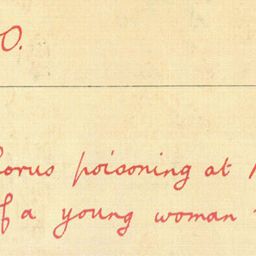 O.
orus poisoning at
f a young woman